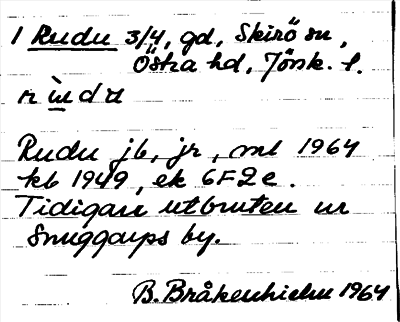 1 Rudu 3/4, gd, Skirö sn,
Östra hd, Jönk. l.
rùdu
Rudu jb, jr, ml 1964
kb 1949, ek 6F2e.
Tidigare utbruten ur
Snuggarps by.
B. Bråkenhielm 1964